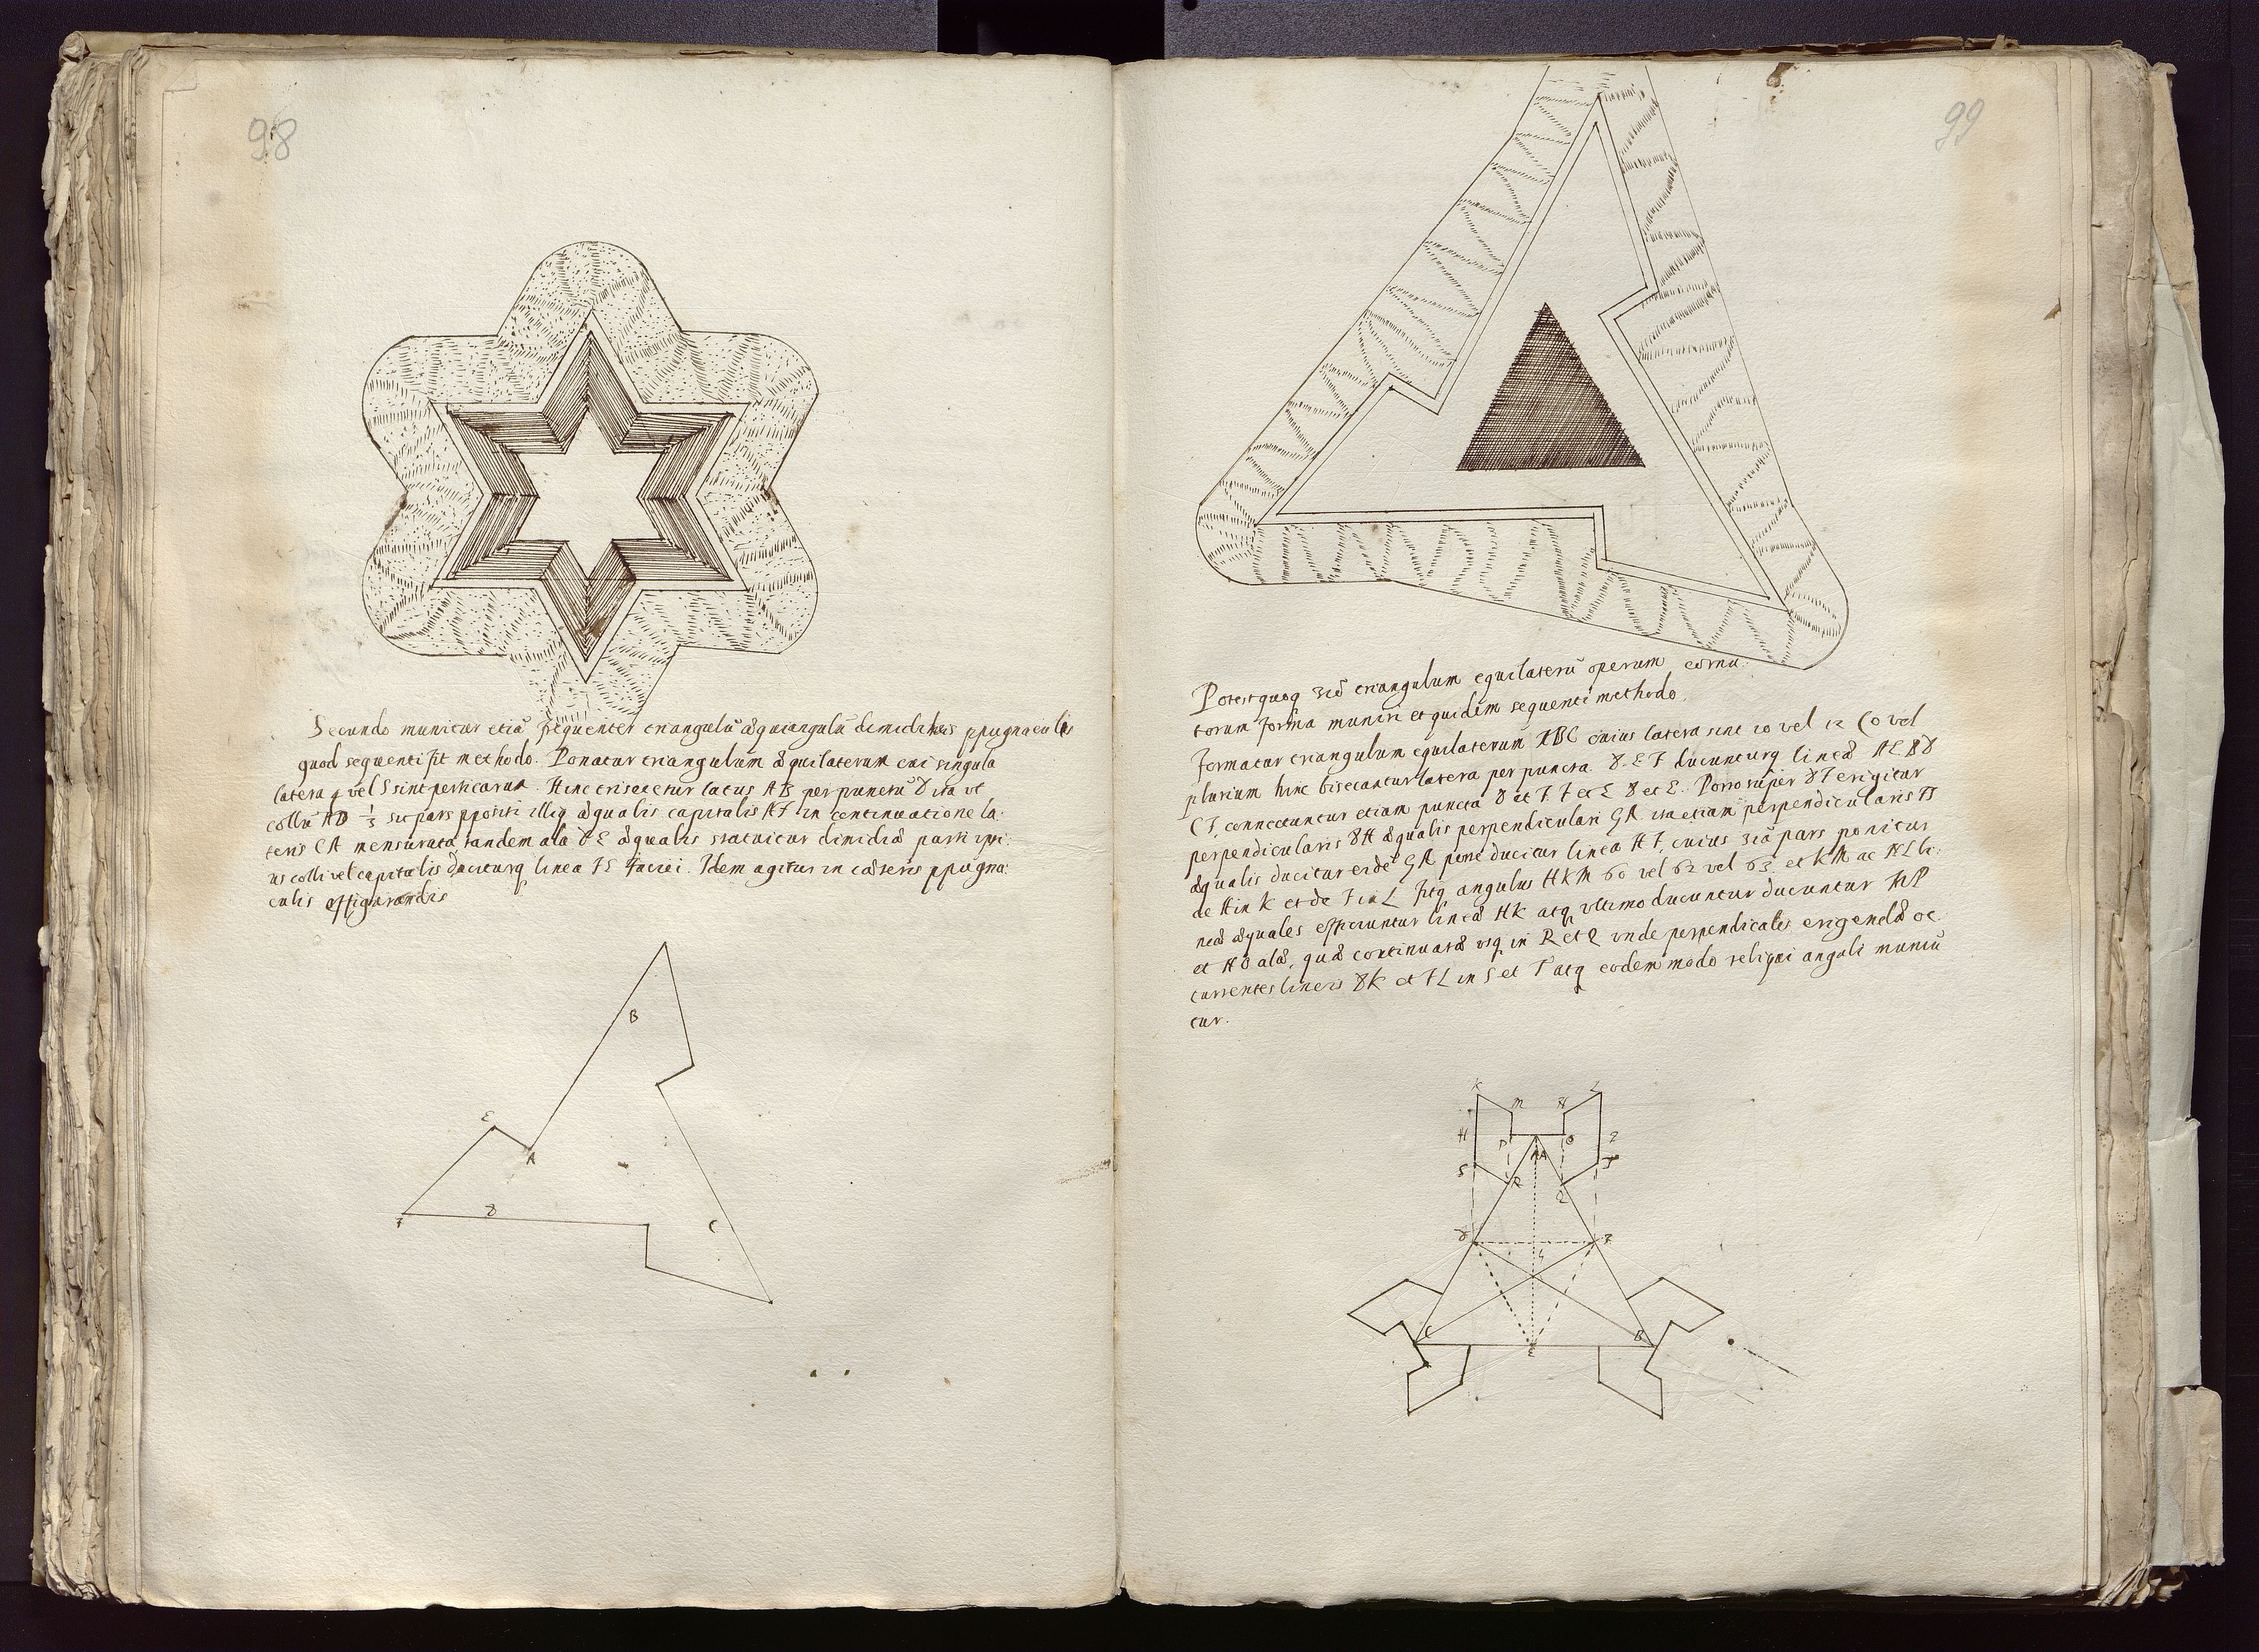 98
Secundo munitur etiã frequenter triangulũ æquiangulũ dimidiis ppugnaculis
quod sequenti fit methodo. Ponatur triangulum æquilaterum cui singula
latera 4 vel 5 sint perticarum. Hinc trisecetur latus AB per punctũ D ita ut
collũ AD 1/3 sit pars ppositi illiq æqualis capitalis AF in continuatione la:
teris CA mensurata, tandem ala DE æqualis statuitur dimidiæ parti ipsi:
us colli vel capitalis duciturq linea FE faciei. Idem agitur in cæteris ppugna:
culis effigurandis
B
E
A
D
F
C
99
Potest quoq 3iõ triangulum equilaterũ operum cornu:
torum forma muniri et quidem sequenti methodo.
Formatur triangulum equilaterum ABC cuius latera sint 10 vel 12 (0 vel
plurium hinc bisecantur latera per puncta D. E F ducunturq lineæ AE BD
CF, connectuntur etiam puncta D et F. F et E D et E. Porro super DF erigitur
perpendicularis DH æqualis perpendiculari GA. ita etiam perpendicularis FI
æqualis ducitur eidē GA pone ducitur linea HF, cuius 3iã pars ponitur
de H in K et de F in L fitq angulus HKM 60 vel 62 vel 63. et KM ac NL li:
neæ æquales efficiuntur lineæ HK atq ultimo ducuntur ducuntur MP
et NO alæ, quæ continuatæ usq in R et Q unde perpendicales erigendæ oc:
currentes lineis DK et FL in S et T atq eodem modo reliqui anguli muniũ
tur.
K
L
M
N
H
P
O
I
S
A
T
R
Q
D
F
G
C
B
E